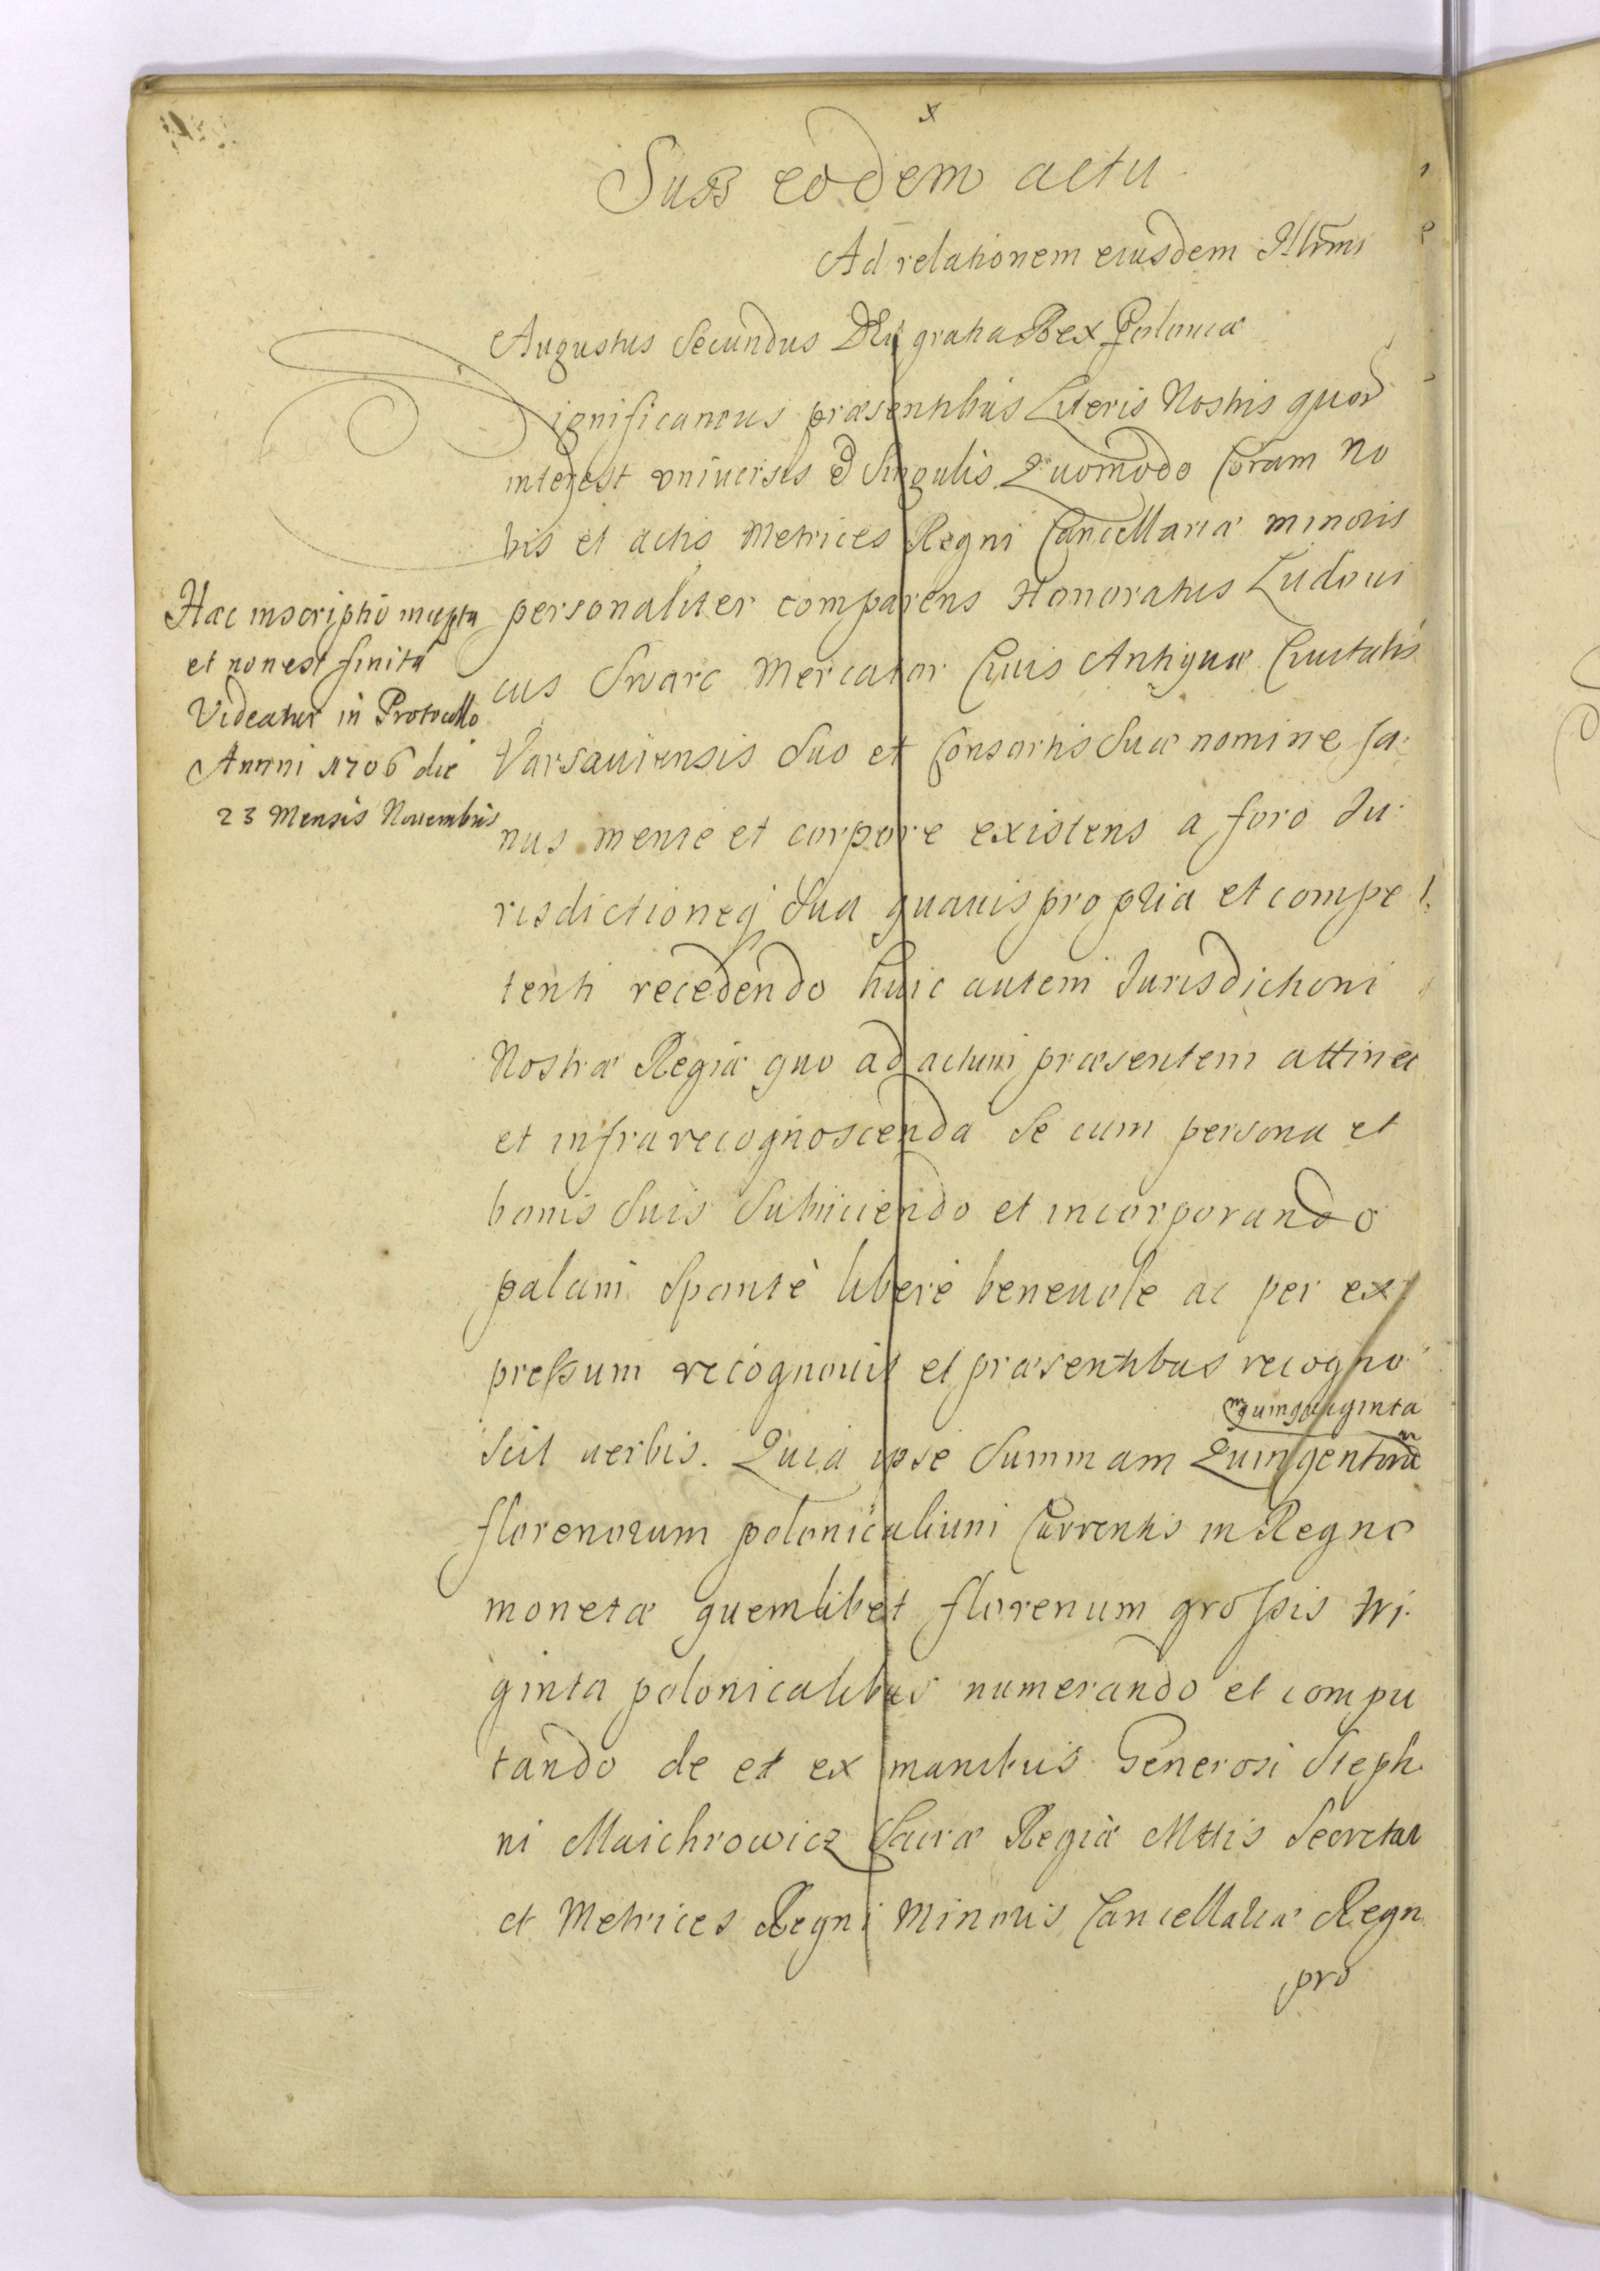 x
Sub eodem actu
Ad relationem eiusdem Illrmi
Augustus Secundus DEi gratia Rex Poloniæ
Significamus præsentibus Literis Nostris quor
interest vniuersis & Singulis Quomodo Coram No
bis et actis Metrices Regni Cancellariæ minoris
personaliter comparens Honoratus Ludoui
cus Swarc Mercator Ciuis Antiquæ Ciuitatis
Varsauiensis Suo et Consortis Suæ nomine Sa:
nus mente et corpore existens a foro Iu:
risdictioneq Sua quauis propria et compe
tenti recedendo huic autem Iurisdictioni
Nostræ Regiæ quo ad actum præsentem attinet
et infra recognoscenda Se cum persona et
bonis Suis Subiiciendo et incorporando
palam Spontè liberè beneuole ac per ex
pressum recognouit et præsentibus recogno
quinquaginta
scit verbis. Quia ipse Summam Quingentorũ
florenorum polonicalium Currentis in Regno
monetæ quemlibet florenum grossis tri
ginta polonicalibus numerando et compu
tando de et ex manibus Generosi Steph
ni Maichrowicz Sacræ Regiæ Mttis Secretar
et Metrices Regni Minoris Cancellariæ Regn
pro
Hæc inscriptio inepta
et non est finita
Videatur in Protocollo
Annni 1706 die
23 Mensis Nouembris